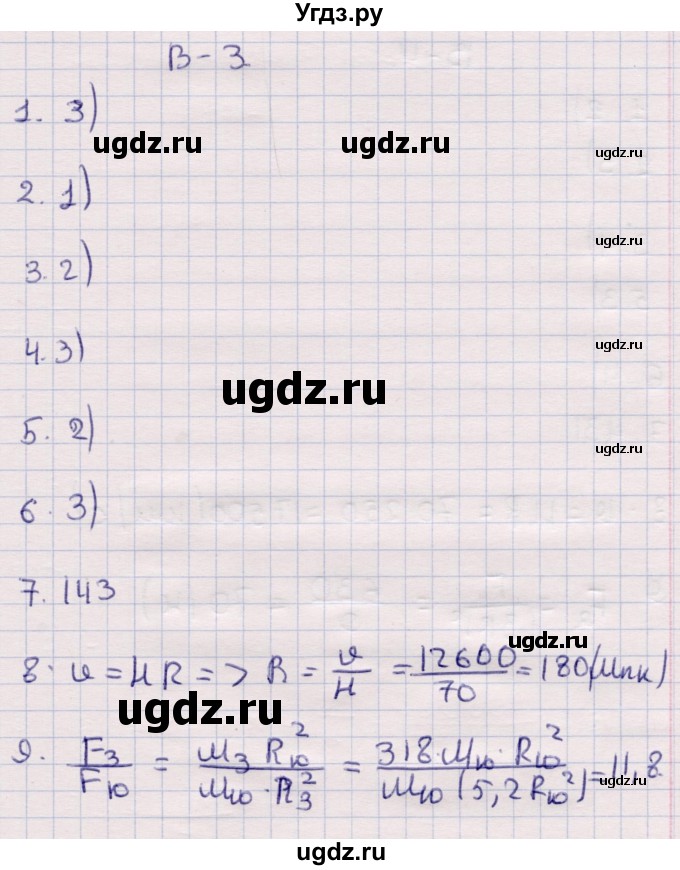 Угдз.ру
В-3
1. 3)
ugdz.ru ugdz.ru ugdz.ru
2. 1)
ugdz.ru
3. 2)
4. 3)
ugdz.ru
ugdz.ru
5. 2)
ugdz.ru
6. 3)
7. 143
ugdz.ru
8. υ = HR => R = υ/H = 12600/70 = 180 (Мпк)
ugdz.ru
9. Fз/Fю = Mз Rю²/Mю · Rз² = 318·Mю · Rю²/Mю (5,2Rю²) = 11,8
ugdz.ru
ugdz.ru